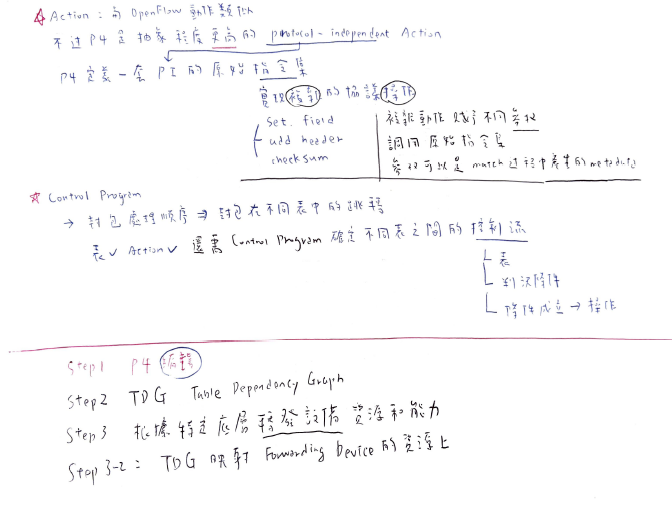 ☆ Action : 與 OpenFlow 動作類似
不过 P4 是抽象程度更高的 protocol-independent Action
P4 定義一套 PI 的原始指令集
實現複雜的協議操作
set. field
add header
checksum
複雜動作 賦予不同參數
調用原始指令集
參數可以是 match 过程中產生的 metadata
☆ Control Program
→ 封包處理順序 ⇒ 封包在不同表中的跳轉
表 ✓ Action ✓ 還需 Control Program 確定不同表之間的控制流
表
判決條件
條件成立 → 操作
Step1 P4 編譯
Step2 TDG Table Dependancy Graph
Step3 根據特定底層轉發設備資源和能力
Step3-2 : TDG 映射 Forwarding Device 的資源上